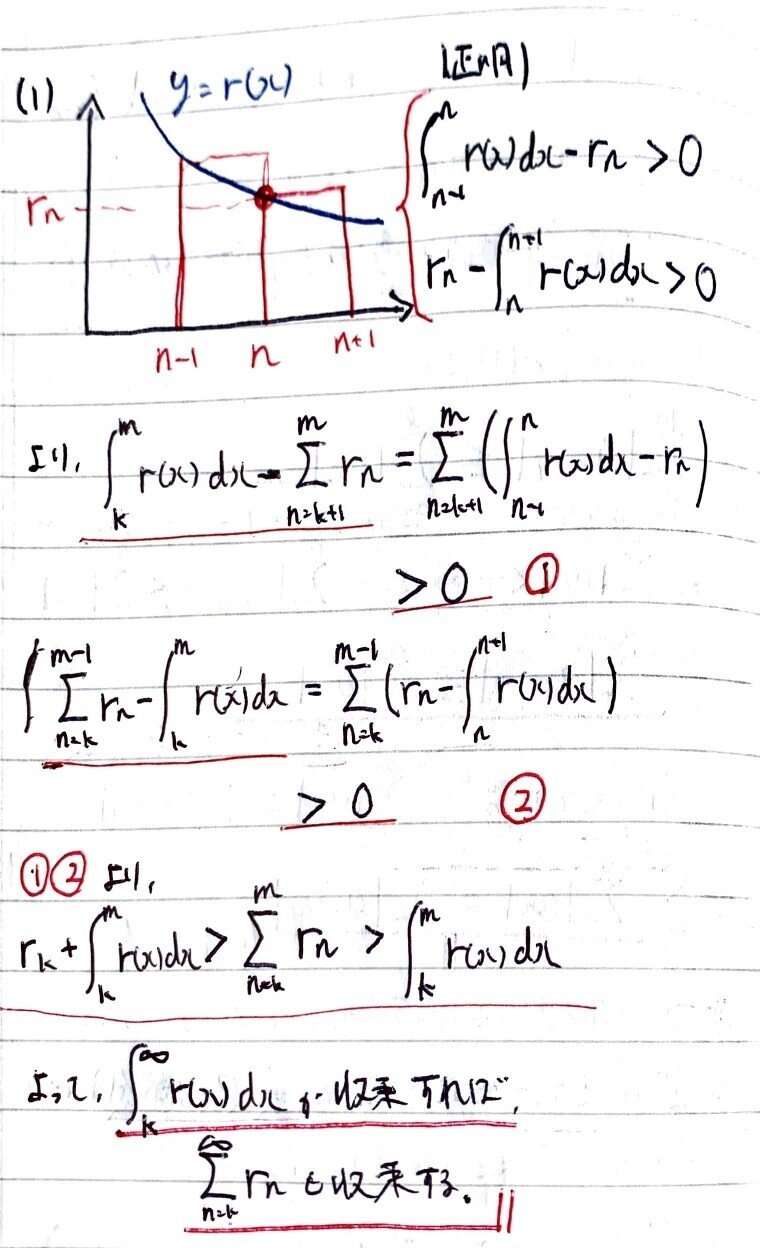 (1) y=r(x) [証明]
∫_{n-1}^{n} r(x)dx - r_n > 0
r_n
r_n - ∫_{n}^{n+1} r(x)dx > 0
n-1 n n+1
より, ∫_{k}^{m} r(x)dx - ∑_{n=k+1}^{m} r_n = ∑_{n=k+1}^{m} (∫_{n-1}^{n} r(x)dx - r_n)
> 0 ①
∑_{n=k}^{m-1} r_n - ∫_{k}^{m} r(x)dx = ∑_{n=k}^{m-1} (r_n - ∫_{n}^{n+1} r(x)dx)
> 0 ②
①② より,
r_k + ∫_{k}^{m} r(x)dx > ∑_{n=k}^{m} r_n > ∫_{k}^{m} r(x)dx
よって, ∫_{k}^{∞} r(x)dx が収束すれば,
∑_{n=k}^{∞} r_n も収束する.